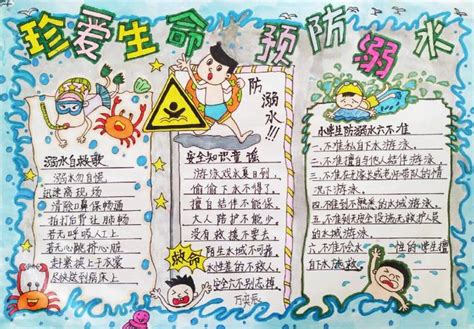 珍爱生命 预防溺水
溺水自救歌
溺水勿慌
迅速离现场
清除口鼻保畅通
拍打后背让肺畅
若无呼吸人工上
若无心跳挤心脏
赶紧披上干衣裳
尽快送到病床上
防溺水!!!
安全知识童谣
游泳戏水夏日到,
偷偷下水不得了。
擅自结伴不能保,
大人陪护不能少,
没有救援不要去,
陌生水域不可靠,
水性差的不救人,
安全六不别忘掉。
救命
小学生防溺水六不准
一.不准私自下水游泳,
二.不准擅自与他人结伴游泳,
三.不准在无家长或老师带队的情
况下游泳,
四.准到不熟悉的水域游泳,
五.不准到无安全设施无救护人员
的水域游泳,
六.不准不会水性的学生擅
自下水施救。